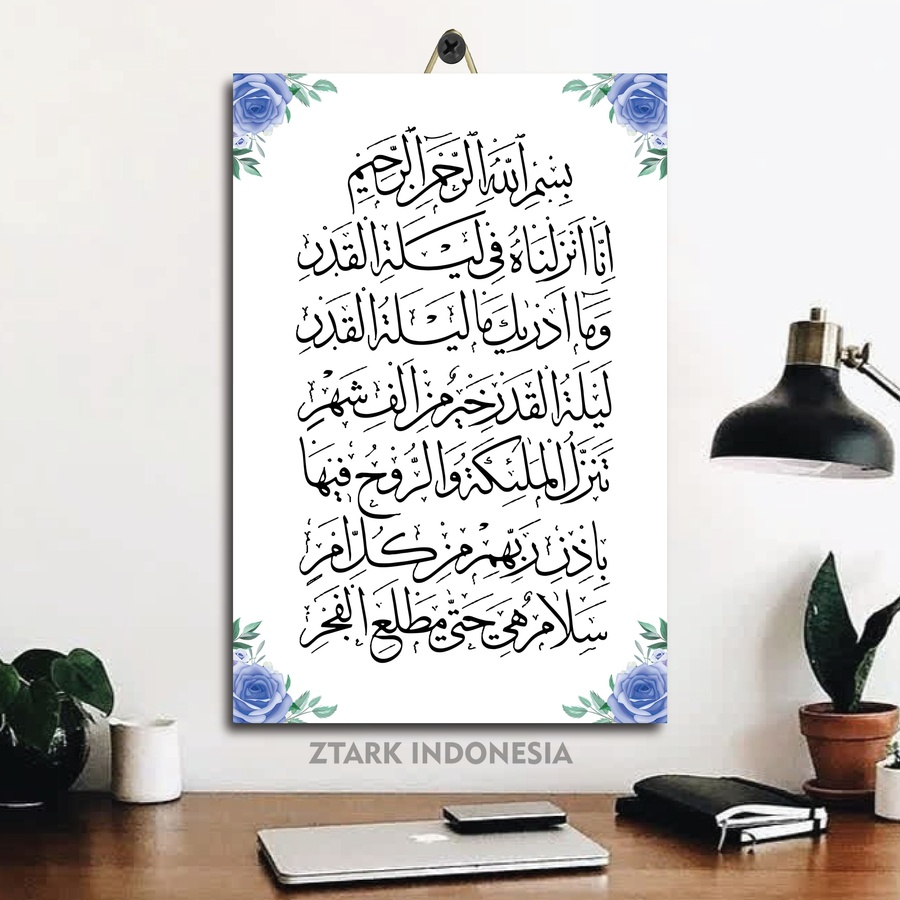 بِسْمِ اللّٰهِ الرَّحْمٰنِ الرَّحِيْمِ
اِنَّا اَنْزَلْنَاهُ فِى لَيْلَةِ الْقَدْرِ
وَمَا اَدْرٰىكَ مَا لَيْلَةُ الْقَدْرِ
لَيْلَةُ الْقَدْرِ خَيْرٌ مِنْ اَلْفِ شَهْرٍ
تَنَزَّلُ الْمَلٰئِكَةُ وَالرُّوْحُ فِيْهَا
بِاِذْنِ رَبِّهِمْ مِنْ كُلِّ اَمْرٍ
سَلَامٌ هِىَ حَتّٰى مَطْلَعِ الْفَجْرِ
ZTARK INDONESIA